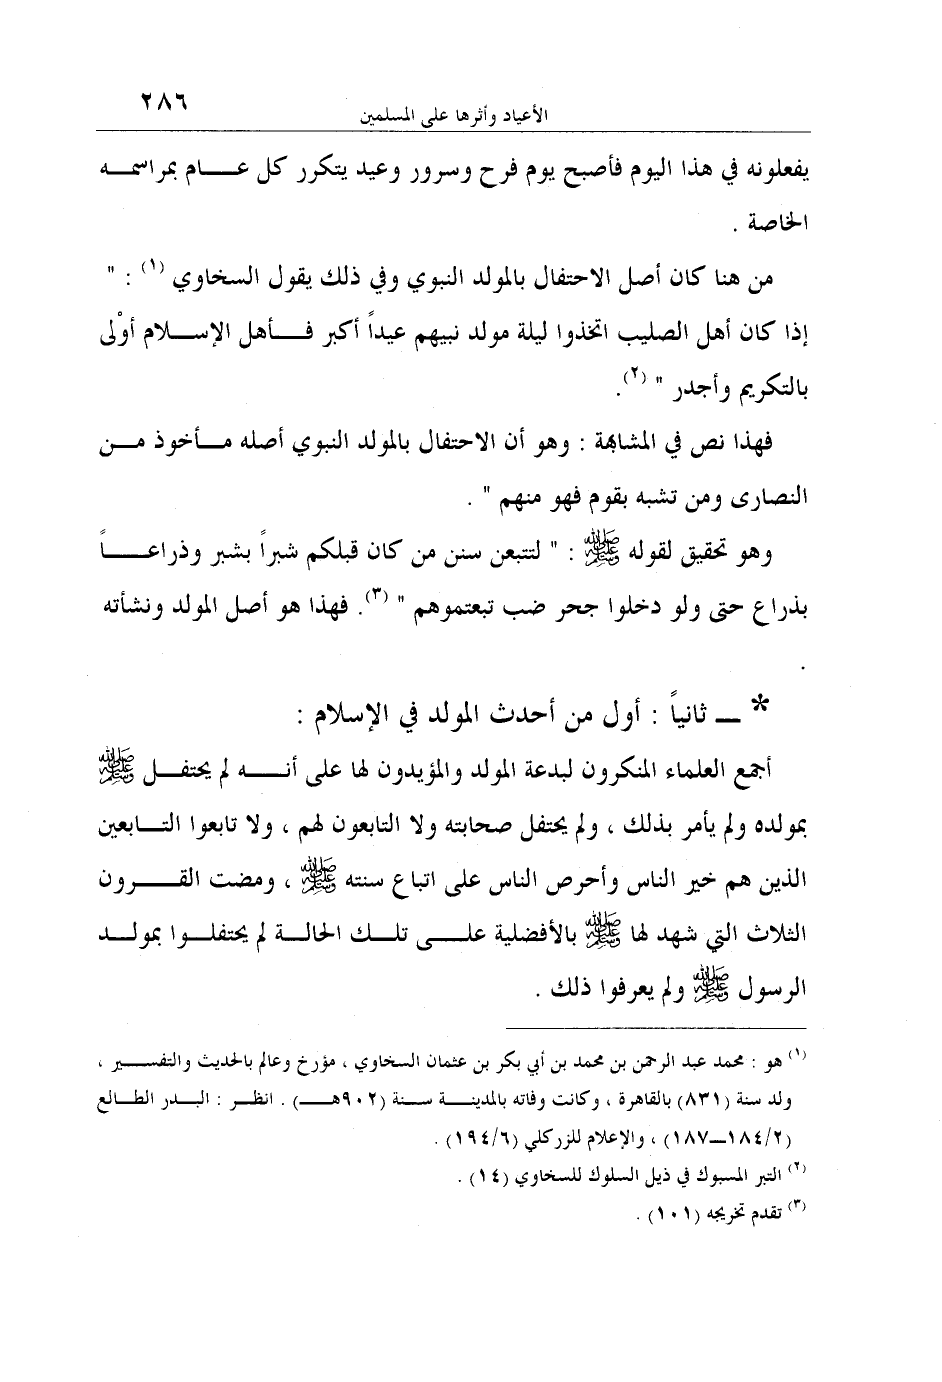 الأعياد وأثرها على المسلمين ٢٨٦
يفعلونه في هذا اليوم فأصبح يوم فرح وسرور وعيد يتكرر كل عـــام بمراسمـه
الخاصة .
من هنا كان أصل الاحتفال بالمولد النبوي وفي ذلك يقول السخاوي (١) : "
إذا كان أهل الصليب اتخذوا ليلة مولد نبيهم عيداً أكبر فـأهل الإسـلام أوْلى
بالتكريم وأجدر " (٢).
فهذا نص في المشابهة : وهو أن الاحتفال بالمولد النبوي أصله مـأخوذ مـن
النصارى ومن تشبه بقوم فهو منهم " .
وهو تحقيق لقوله ﷺ : " لتتبعن سنن من كان قبلكم شبراً بشبر وذراعـــاً
بذراع حتى ولو دخلوا جحر ضب تبعتموهم " (٣). فهذا هو أصل المولد ونشأته
.
* ــ ثانياً : أول من أحدث المولد في الإسلام :
أجمع العلماء المنكرون لبدعة المولد والمؤيدون لها على أنـــه لم يحتفـل ﷺ
بمولده ولم يأمر بذلك ، ولم يحتفل صحابته ولا التابعون لهم ، ولا تابعوا التـابعين
الذين هم خير الناس وأحرص الناس على اتباع سنته ﷺ ، ومضت القـــرون
الثلاث التي شهد لها ﷺ بالأفضلية علـى تلـك الحالـة لم يحتفلـوا بمولـد
الرسول ﷺ ولم يعرفوا ذلك .
(١) هو : محمد عبد الرحمن بن محمد بن أبي بكر بن عثمان السخاوي ، مؤرخ وعالم بالحديث والتفســير ،
ولد سنة (٨٣١) بالقاهرة ، وكانت وفاته بالمدينــة سـنة (٩٠٢هـــ) . انظـر : البـدر الطـالع
(١٨٤/٢ــ١٨٧) ، والإعلام للزركلي (١٩٤/٦) .
(٢) التبر المسبوك في ذيل السلوك للسخاوي (١٤) .
(٣) تقدم تخريجه (١٠١) .